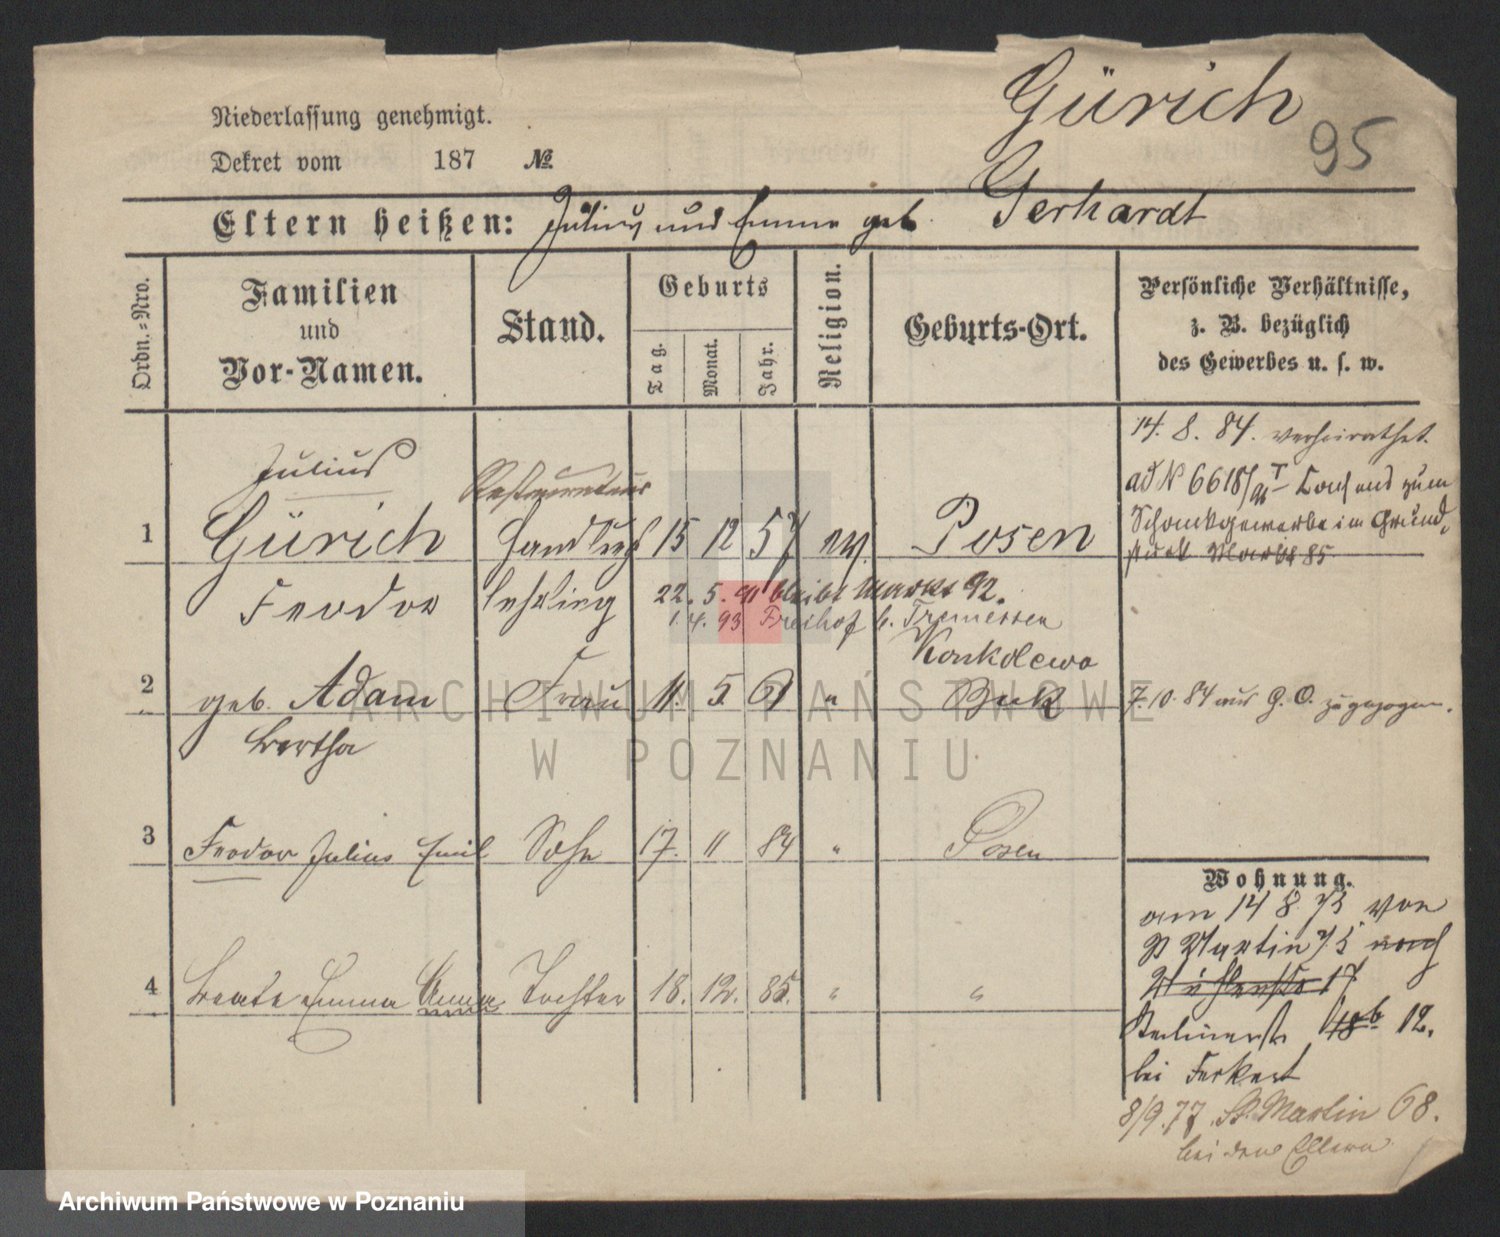 Gürich
95
Niederlassung genehmigt.
Dekret vom 187 №
Eltern heißen: Julius und Emma geb. Gerhardt
Ordn.-Nro.
Familien
und
Vor-Namen.
Stand.
Geburts
Tag.
Monat.
Jahr.
Religion.
Geburts-Ort.
Persönliche Verhältnisse,
z. B. bezüglich
des Gewerbes u. s. w.
14. 8. 84. verheirathet.
Julius
Restaurateur
ad N 6618/ zum
1 Gürich Handlgs 15 12 57 ev. Posen
Schankgewerbe im Grund-
stück Markt 85
Feodor lehrling 22. 5. 91 bleibt Markt 92.
1. 4. 93 Freihof b. Tremessen
Konkolewo
2 geb. Adam Frau 11. 5. 61 " Buk 7. 10. 84 aus G. O. zugezogen.
Bertha
3 Feodor Julius Emil Sohn 17. 11 84 " Posen
Wohnung.
am 14 8. 75 von
St Martin 75 nach
4 Beate Emma Anna Tochter 18. 12. 85. " "
Mühlenstr 17
Berlinerstr 18b 12.
bei Ferkert
8/9. 77. St. Martin 68.
bei den Eltern
ARCHIWUM PAŃSTWOWE
W POZNANIU
Archiwum Państwowe w Poznaniu